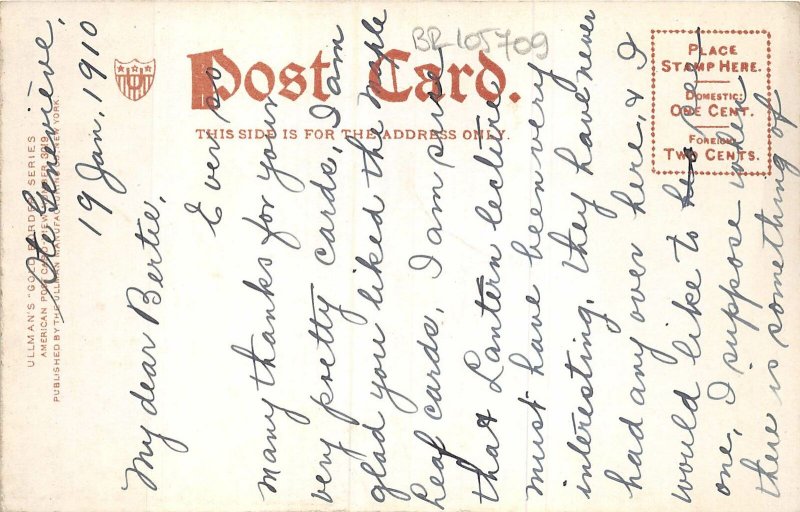 BR-105709
Post Card.
THIS SIDE IS FOR THE ADDRESS ONLY.
PLACE
STAMP HERE.
DOMESTIC:
ONE CENT.
FOREIGN
TWO CENTS.
ULLMAN'S "GOLD BORDER" SERIES
AMERICAN POST CARD VIEWS
PUBLISHED BY THE ULLMAN MANUFACTURING CO. NEW YORK.
Ste Geneviève,
19 Jan, 1910
My dear Bertie,
Ever so
many thanks for your
very pretty cards, I am
glad you liked the maple
leaf cards. I am sure
that Lantern lecture
must have been very
interesting, they have never
had any over here, & I
would like to see
one, I suppose when
there is something of